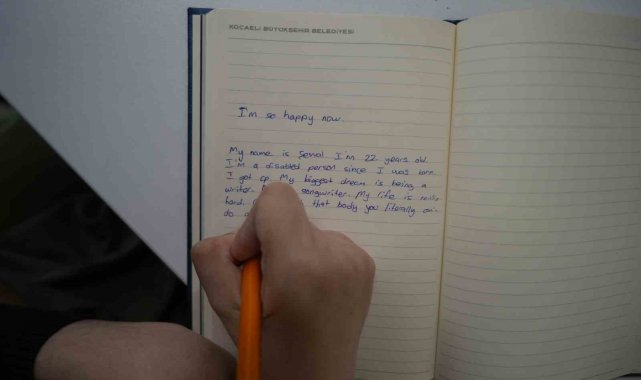 KOCAELİ BÜYÜKŞEHİR BELEDİYESİ
I'm so happy now.
My name is Şevval. I'm 22 years old.
I'm a disabled person since I was born.
I got cp. My biggest dream is being a
writer. songwriter. My life is
hard. that body you literally
do